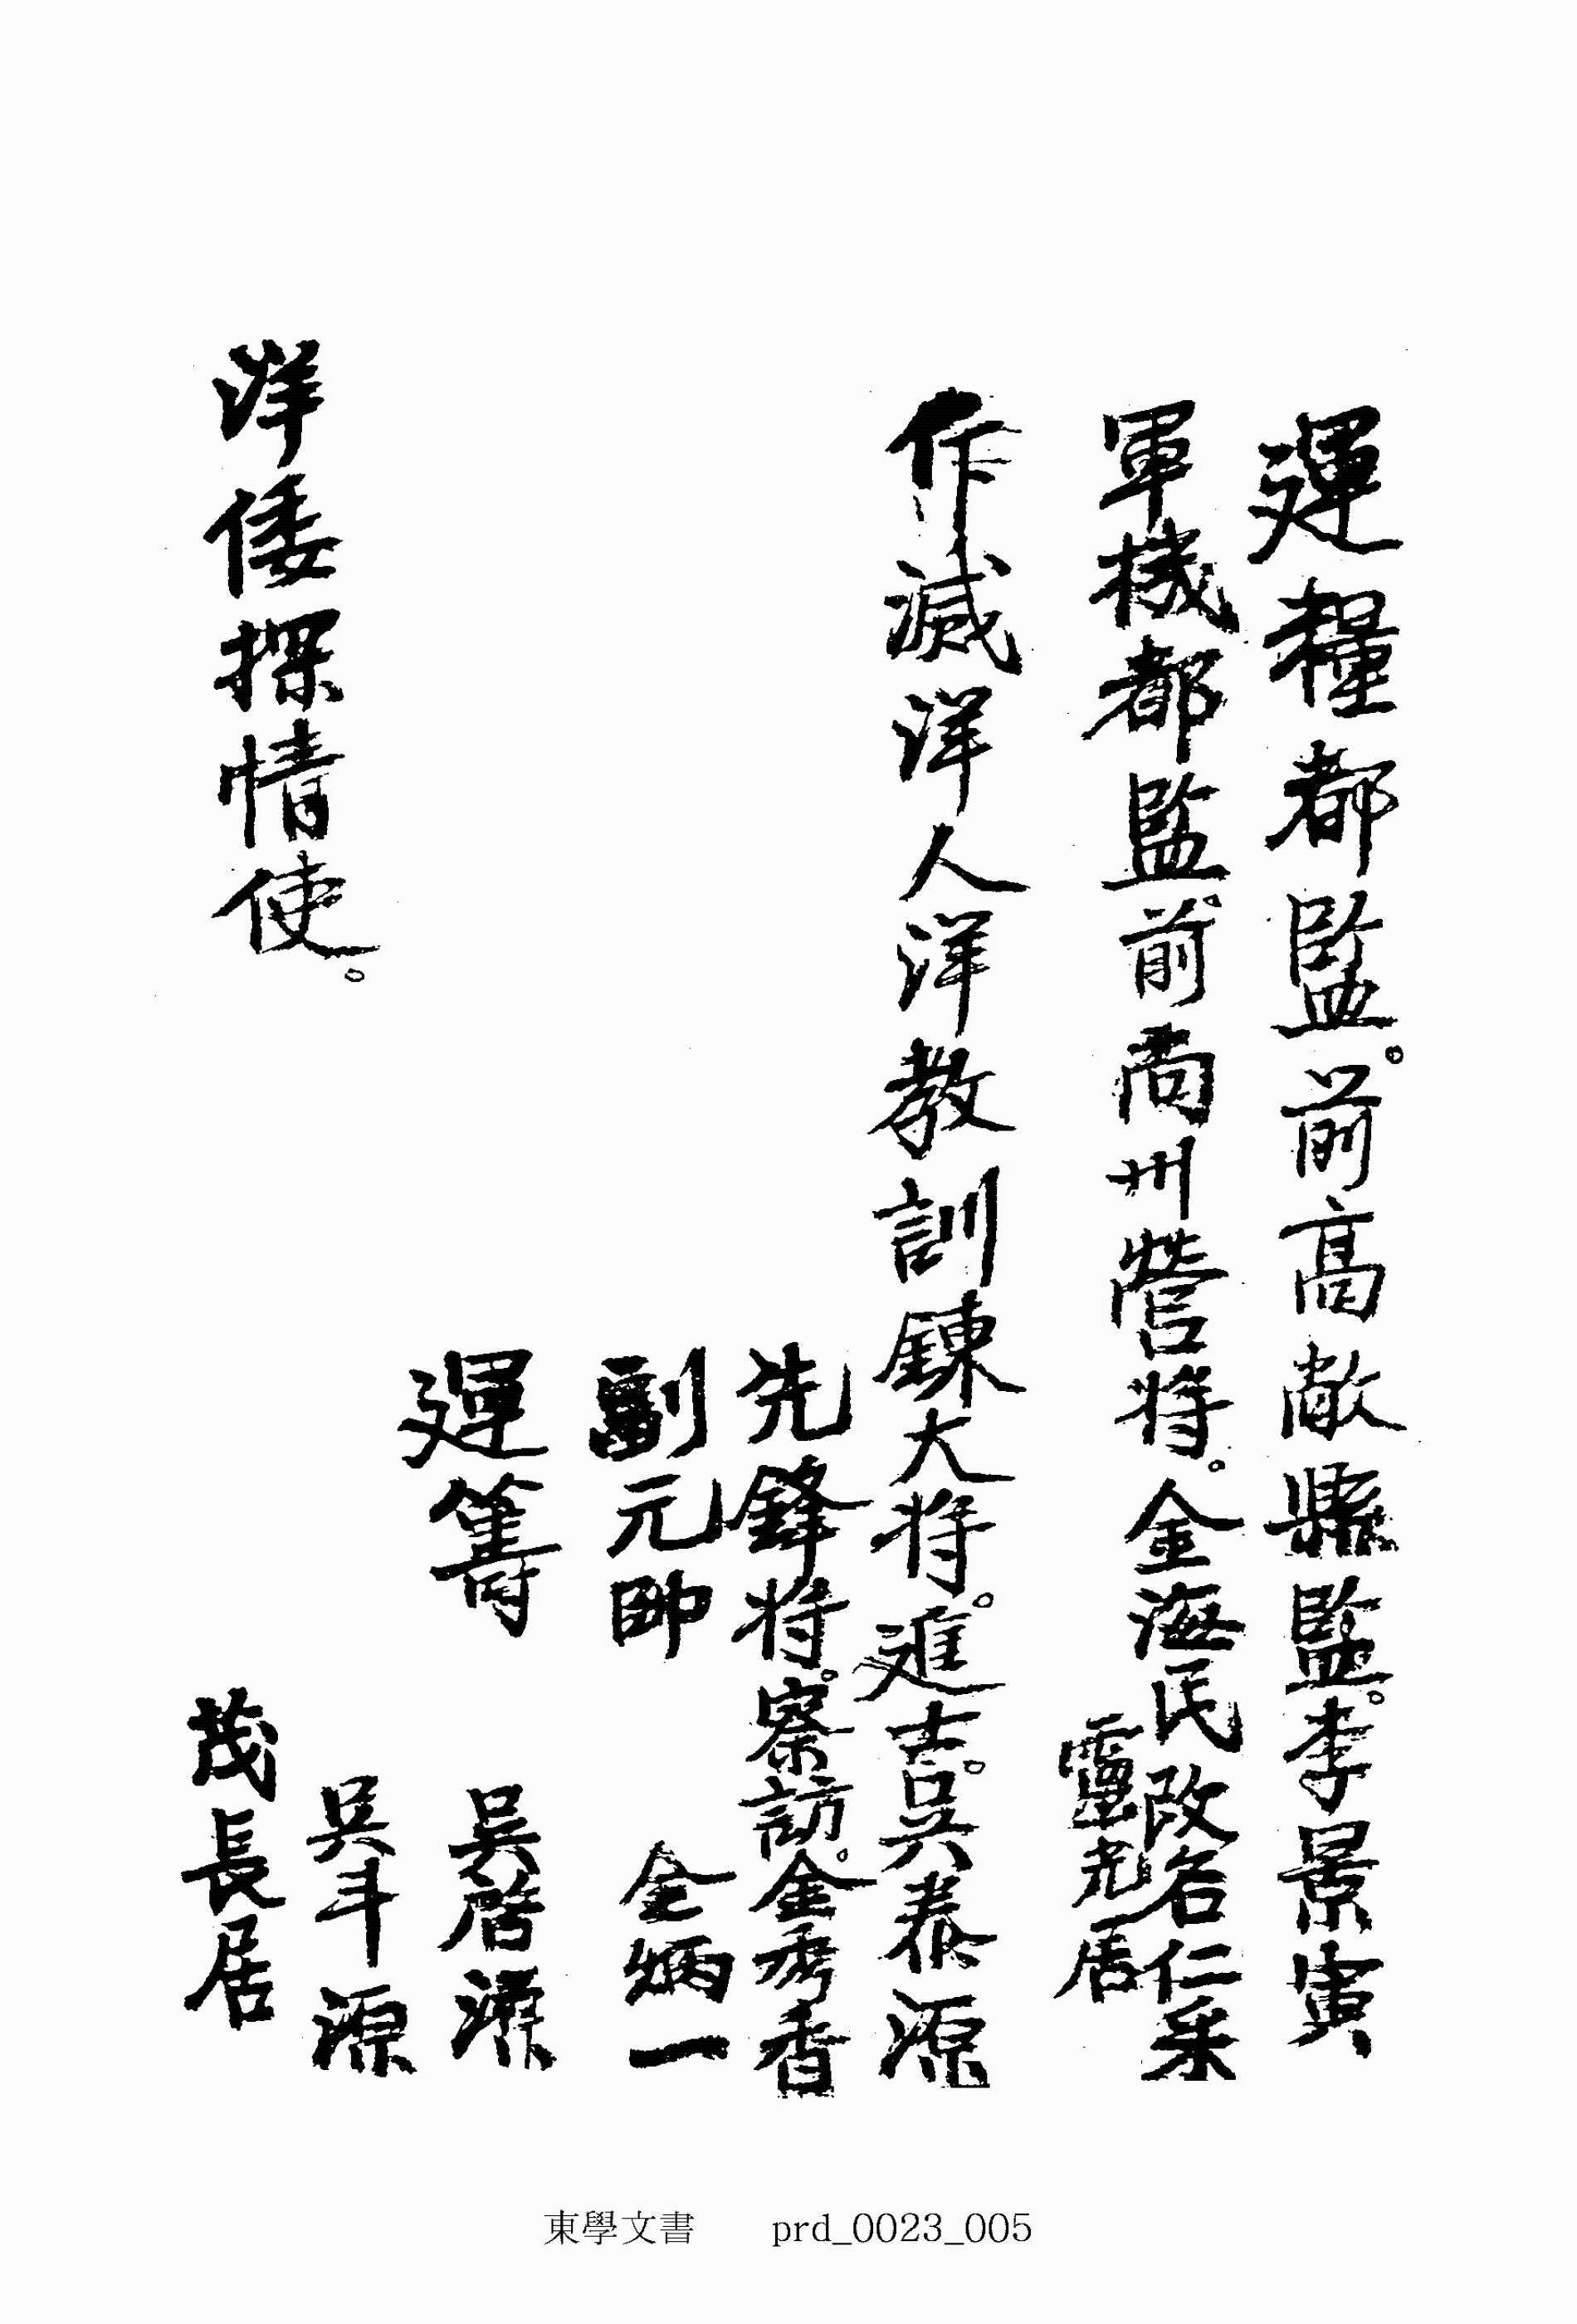 運糧都監。前高敞縣監。李景寅
軍機都監。前尙州營將。金海民改名仁采
靈光居
作滅洋人洋敎訓鍊大將。進士。吳泰源
先鋒將。察訪。金秀香
副元帥 金炳一
運籌 吳啓濬
吳斗源
洋倭探情使。 茂長居
東學文書 prd_0023_005